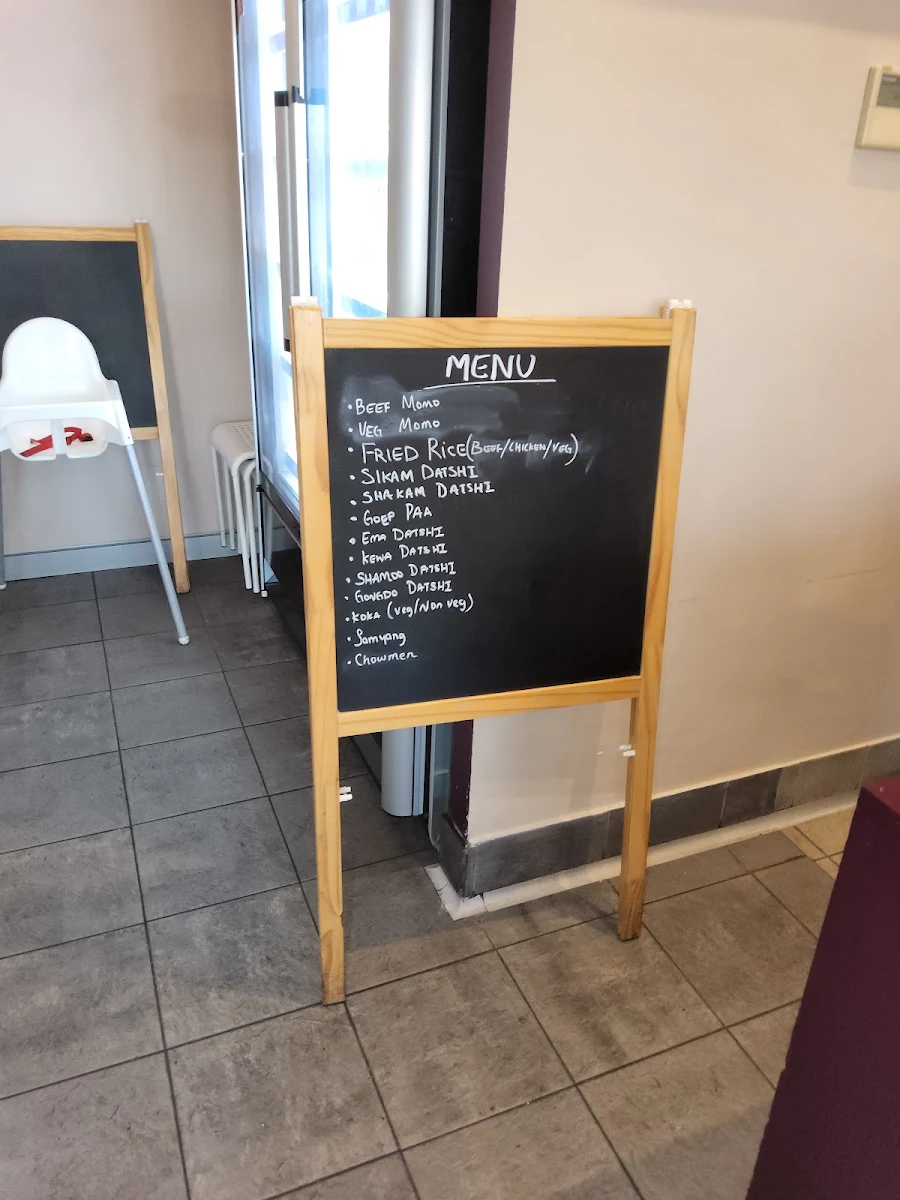 MENU
• BEEF MOMO
• VEG MOMO
• FRIED RICE (BEEF/CHICKEN/VEG)
• SIKAM DATSHI
• SHAKAM DATSHI
• GOEP PAA
• EMA DATSHI
• KEWA DATSHI
• SHAMOO DATSHI
• GONGDO DATSHI
• KOKA (Veg/Non Veg)
• Samyang
• Chowmen